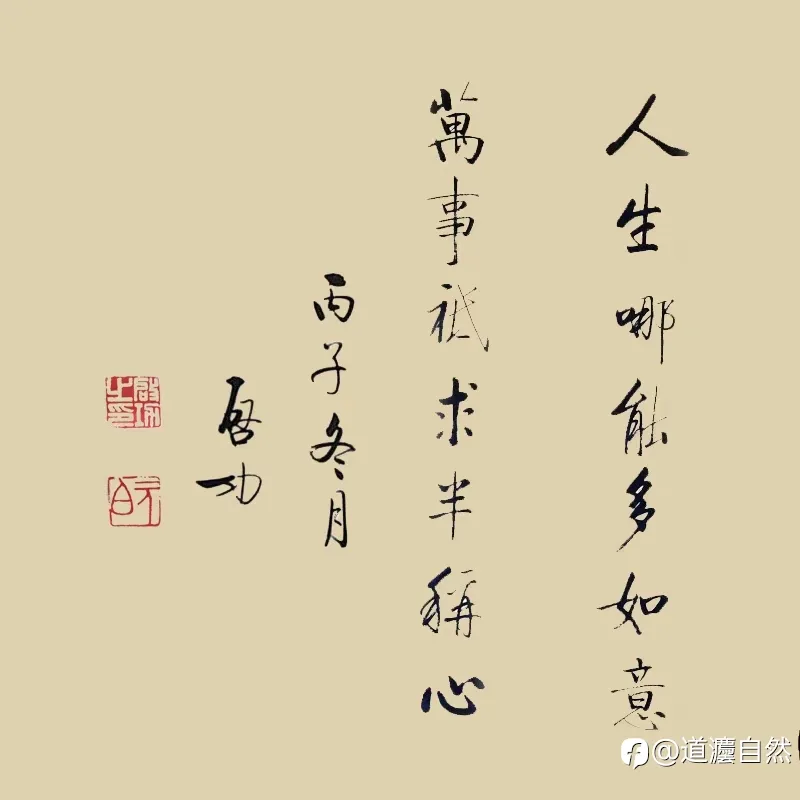 人生哪能多如意
萬事祇求半稱心
丙子冬月
啟功
啟功之印
元白
@道灋自然